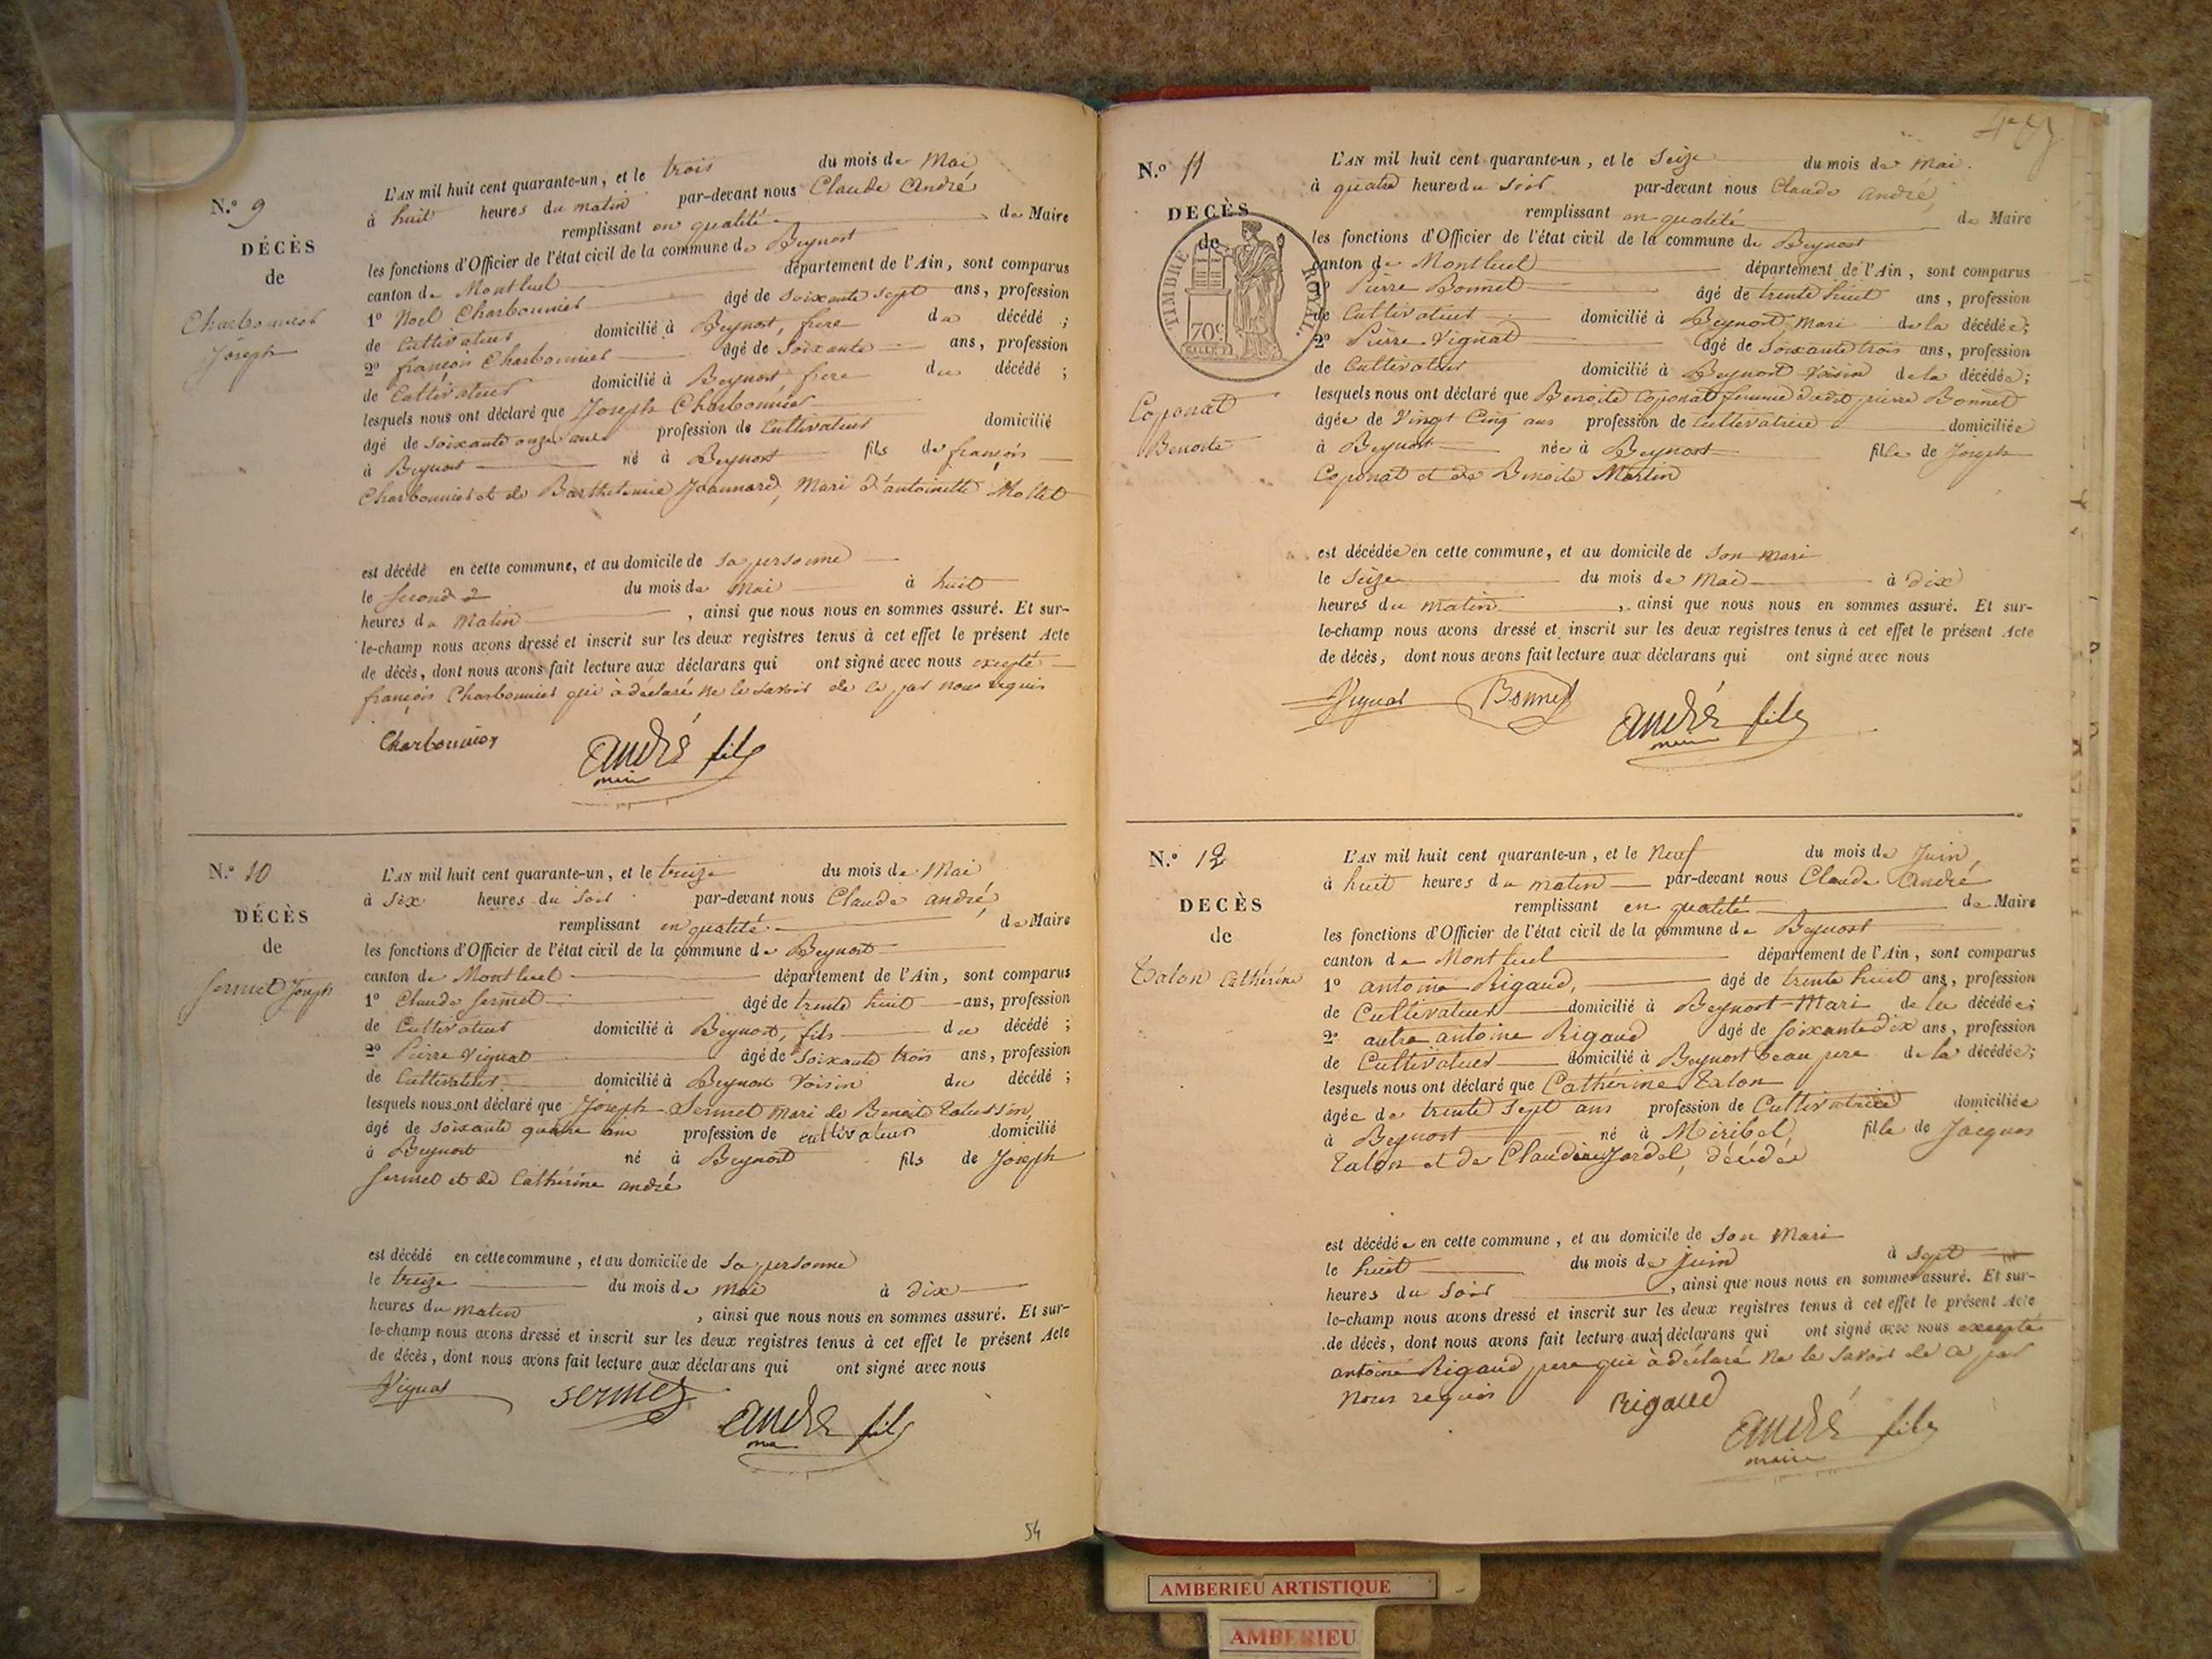 N.° 9
DÉCÈS
de
Charbonnier
Joseph
L'AN mil huit cent quarante-un, et le trois du mois de Mai
à huit heures du matin par-devant nous Claude André
remplissant en qualité de Maire
les fonctions d'Officier de l'état civil de la commune de Beynost
canton de Montluel département de l'Ain, sont comparus
1° Noel Charbonnier âgé de soixante sept ans, profession
de Cultivateur domicilié à Beynost, frere du décédé ;
2° françois Charbonnier âgé de Soixante ans, profession
de Cultivateur domicilié à Beynost, frere du décédé ;
lesquels nous ont déclaré que Joseph Charbonnier
âgé de soixante onze ans profession de Cultivateur domicilié
à Beynost né à Beynost fils de françois
Charbonnier et de Barthelemie Joannard, Mari d'antoinette Mollet
est décédé en cette commune, et au domicile de sa personne
le second 2 du mois de Mai à huit
heures du Matin , ainsi que nous nous en sommes assuré. Et sur-
le-champ nous avons dressé et inscrit sur les deux registres tenus à cet effet le présent Acte
de décès, dont nous avons fait lecture aux déclarans qui ont signé avec nous excepté
françois Charbonnier qui à déclaré ne le savoir de ce par nous requis
Charbonnier André fils
maire
N.° 10
DÉCÈS
de
Sermet Joseph
L'AN mil huit cent quarante-un, et le treize du mois de Mai
à Six heures du Soir par-devant nous Claude André
remplissant en qualité de Maire
les fonctions d'Officier de l'état civil de la commune de Beynost
canton de Montluel département de l'Ain, sont comparus
1° Claude Sermet âgé de trente huit ans, profession
de Cultivateur domicilié à Beynost, fils du décédé ;
2° Pierre Vignat âgé de Soixante trois ans, profession
de Cultivateur domicilié à Beynost Voisin du décédé ;
lesquels nous ont déclaré que Joseph Sermet mari de Benoite Talussin,
âgé de soixante quatre ans profession de cultivateur domicilié
à Beynost né à Beynost fils de Joseph
Sermet et de Cathérine andré
est décédé en cette commune, et au domicile de sa personne
le treize du mois de Mai à dix
heures du matin , ainsi que nous nous en sommes assuré. Et sur-
le-champ nous avons dressé et inscrit sur les deux registres tenus à cet effet le présent Acte
de décès, dont nous avons fait lecture aux déclarans qui ont signé avec nous
Vignat Sermet André fils
54
N.° 11
DECÈS
de
TIMBRE ROYAL.
70c
Coponat
Benoite
L'AN mil huit cent quarante-un, et le Seize du mois de Mai.
à quatre heures du Soir par-devant nous Claude André,
remplissant en qualité de Maire
les fonctions d'Officier de l'état civil de la commune de Beynost
canton de Montluel département de l'Ain, sont comparus
1° Pierre Bonnet âgé de trente huit ans, profession
de Cultivateur domicilié à Beynost, Mari de la décédée;
2° Pierre Vignat âgé de Soixante trois ans, profession
de Cultivateur domicilié à Beynost Voisin de la décédée;
lesquels nous ont déclaré que Benoite Coponat femme dudit pierre Bonnet
âgée de Vingt Cinq ans profession de cultivatrice domiciliée
à Beynost née à Beynost fille de Joseph
Coponat et de Benoite Martin
est décédée en cette commune, et au domicile de son mari
le Seize du mois de Mai à dix
heures du matin , ainsi que nous nous en sommes assuré. Et sur-
le-champ nous avons dressé et inscrit sur les deux registres tenus à cet effet le présent Acte
de décès, dont nous avons fait lecture aux déclarans qui ont signé avec nous
Vignat Bonnet André fils
N.° 12
DECÈS
de
Talon Cathérine
L'AN mil huit cent quarante-un, et le Neuf du mois de Juin,
à huit heures du matin par-devant nous Claude André
remplissant en qualité de Maire
les fonctions d'Officier de l'état civil de la commune de Beynost
canton de Montluel département de l'Ain, sont comparus
1° antoine Rigaud, âgé de trente huit ans, profession
de Cultivateur domicilié à Beynost Mari de la décédée;
2° autre antoine Rigaud âgé de soixante dix ans, profession
de Cultivateur domicilié à Beynost beau pere de la décédée;
lesquels nous ont déclaré que Cathérine Talon
âgée de trente Sept ans profession de Cultivatrice domiciliée
à Beynost né à Miribel, fille de Jacques
Talon et de Claudine Jardel, décédés
est décédée en cette commune, et au domicile de Son Mari
le huit du mois de juin à sept
heures du Soir , ainsi que nous nous en sommes assuré. Et sur-
le-champ nous avons dressé et inscrit sur les deux registres tenus à cet effet le présent Acte
de décès, dont nous avons fait lecture aux déclarans qui ont signé avec nous excepté
antoine Rigaud pere qui à déclaré ne le savoir de ce par
nous requis Rigaud André fils
maire
AMBERIEU ARTISTIQUE
AMBERIEU